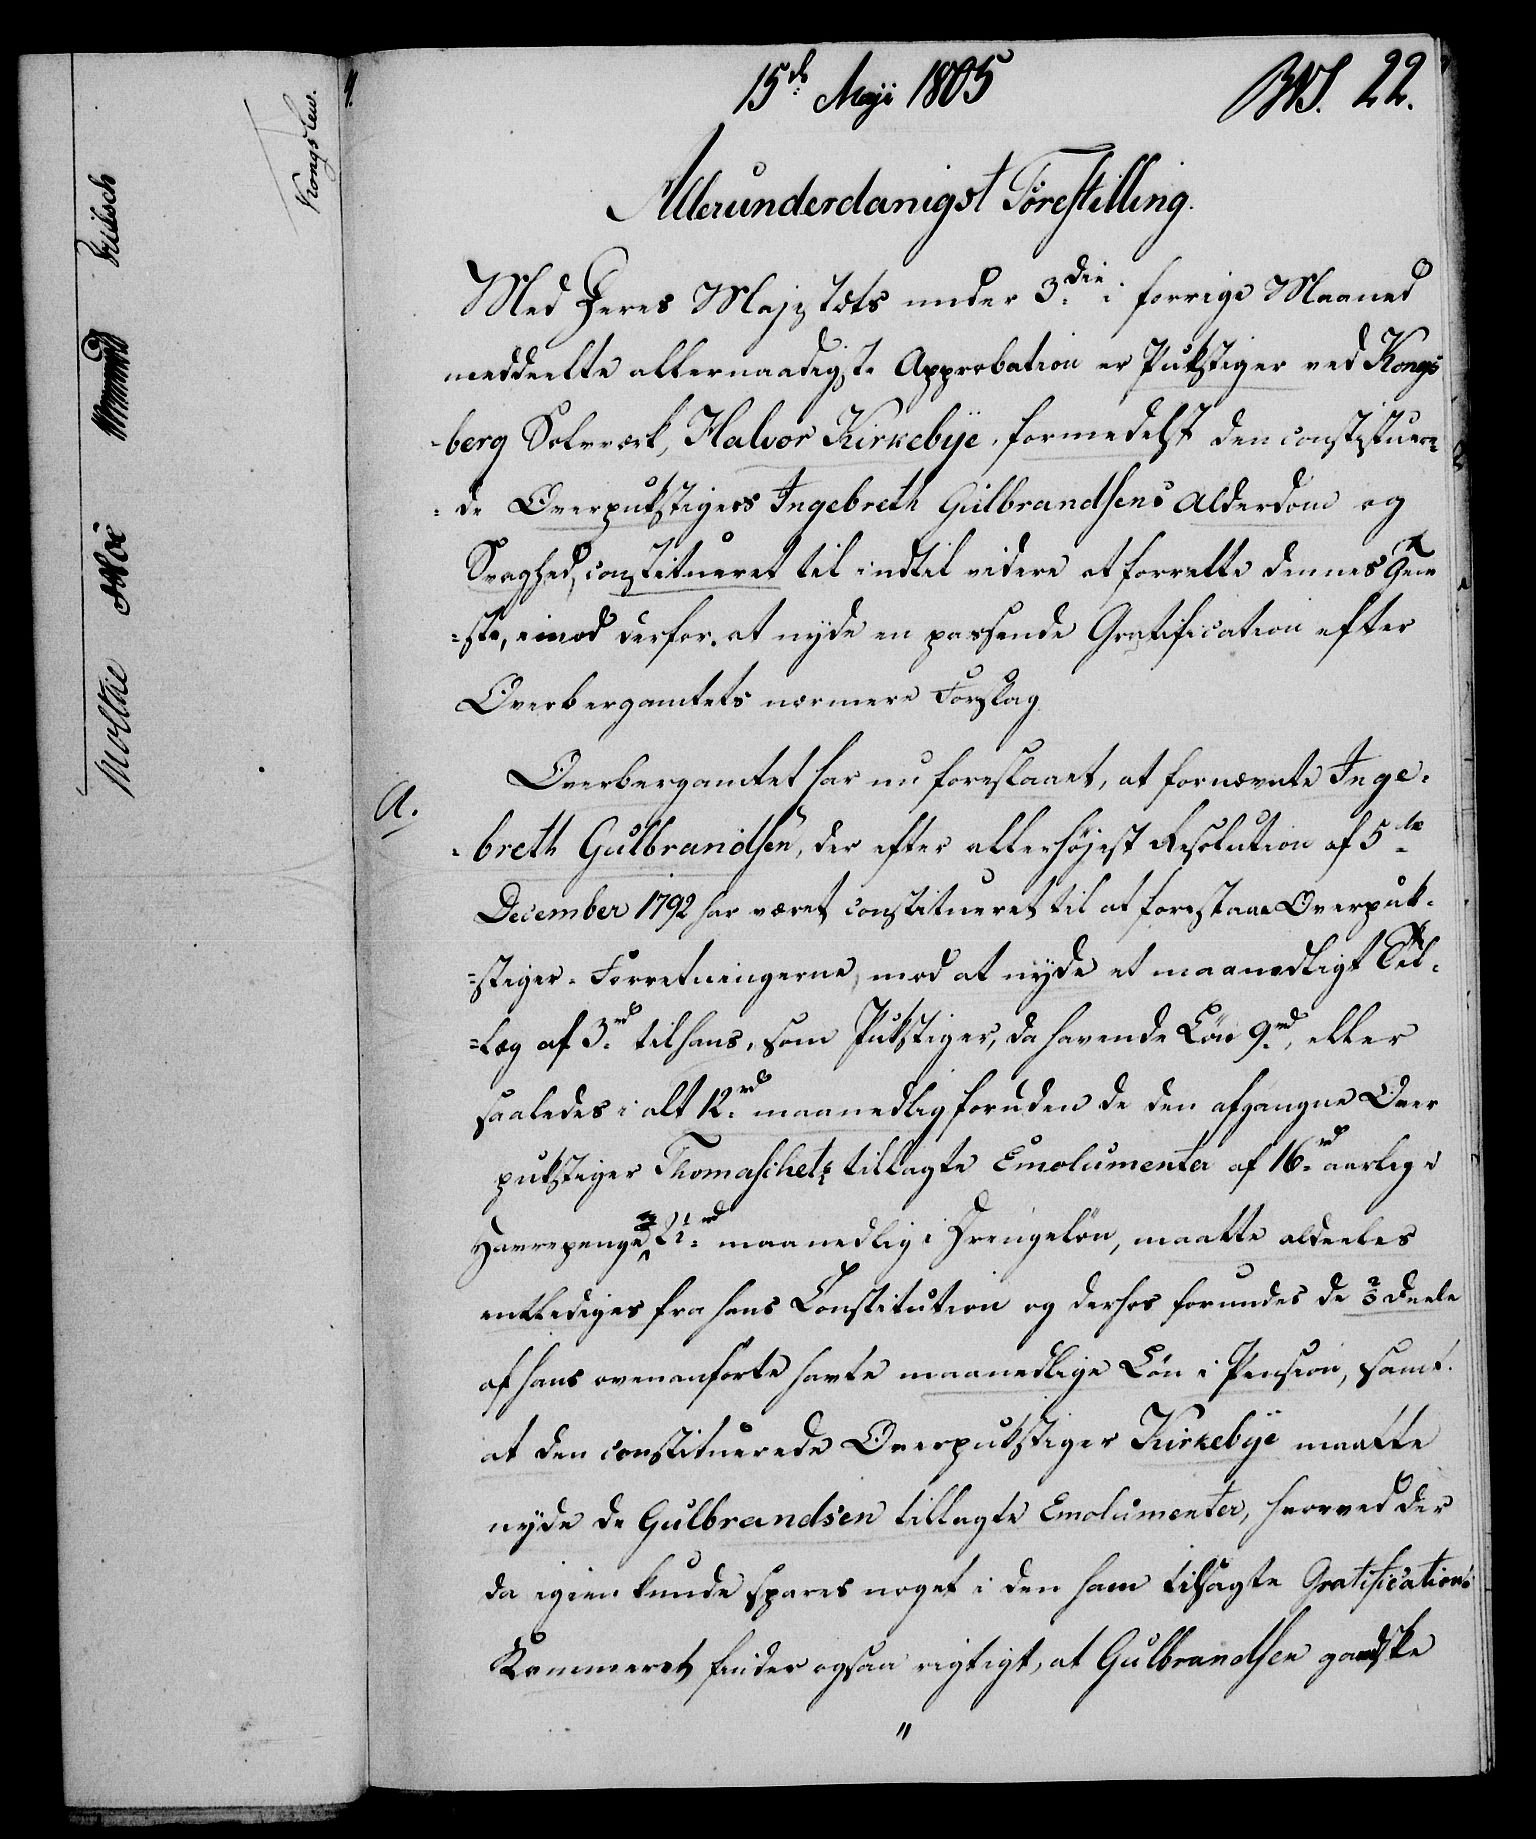 15de Maji 1805
22.
Allerunderdanigst Forestilling.
Med Deres Majestæts under 3die i forrige Maaned
meddeelte allernaadigste Approbation er Pukstiger ved Kongs
-berg Sølvværk, Halvor Kirkebÿe, formedelst den constituere
=de Overpukstigers Ingebreth Gulbrandsens Alderdom og
Svaghed, constitueret til indtil videre at forrette dennes Tiene
=ste, imod derfor at nyde en passende Gratification efter
Overbergamtets nærmere Forslag
A.
Overbergamtet har nu foreslaaet, at fornævnte Inge=
=breth Gulbrandsen, der efter allerhøjest Resolution af 5te
December 1792 har været constitueret til at forestaae Overpuk=
=stiger-Forretningerne, mod at nyde et maanedligt Til=
=læg af 3rd til hans, som Pukstiger, da havende Løn 9rd, eller
saaledes i alt 12rd maanedlig foruden de den afgangne Over
pukstiger Thomaschek tillagte Emolumenter af 16rd aarlig i
Havrepenge 1rd maanedlig i Drengeløn, maatte aldeeles
entlediges fra hans Constitution og derhos forundes de 2/3 Deele
af hans ovenanførte havte maanedlige Løn i Pension, samt
at den constituerede Overpukstiger Kirkebÿe maatte
nyde de Gulbrandsen tillagte Emolumenter, hvorved der
da igien kunde spares noget i den ham tilsagte Gratification
Kammeret finder ogsaa rigtigt, at Gulbrandsen gandske
"
Kongslew.
Moltke